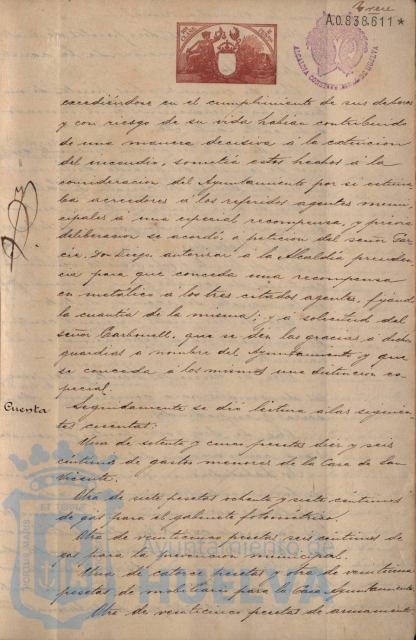 Trece
A.0.838.611*
ALCALDIA CONSTITUCIONAL DE HUELVA
excediéndose en el cumplimiento de sus deberes
y con riesgo de su vida habian contribuido
de una manera decisiva á la extincion
del incendio, sometia estos hechos á la
consideracion del Ayuntamiento por si estima
ba acreedores á los referidos agentes muni-
cipales á una especial recompensa, y previa
deliberacion se acordó, a peticion del señor Gar-
cia, autorizar á la Alcaldia presiden-
cia para que conceda una recompensa
en metálico á los tres citados agentes, fijando
la cuantia de la misma; y á solicitud del
señor Carbonell, que se den las gracias á dichos
guardias a nombre del Ayuntamiento y que
se conceda á los mismos una distincion es-
pecial.
Cuenta
Seguidamente se dió lectura a las siguien-
tes cuentas:
Una de setenta y cinco pesetas diez y seis
céntimos de gastos menores de la Casa de San
Vicente.
Otra de siete pesetas ochenta y siete céntimos
de gas para el gabinete fotométrico.
Otra de veinticinco pesetas seis céntimos de
gas para la
Una de catorce pesetas y otra de veintiuna
pesetas de mobiliario para la Casa Ayuntamiento
Otra de veinticinco pesetas de
PORTUS MARIS ET TERRAE
Ayuntamiento de
HUELVA